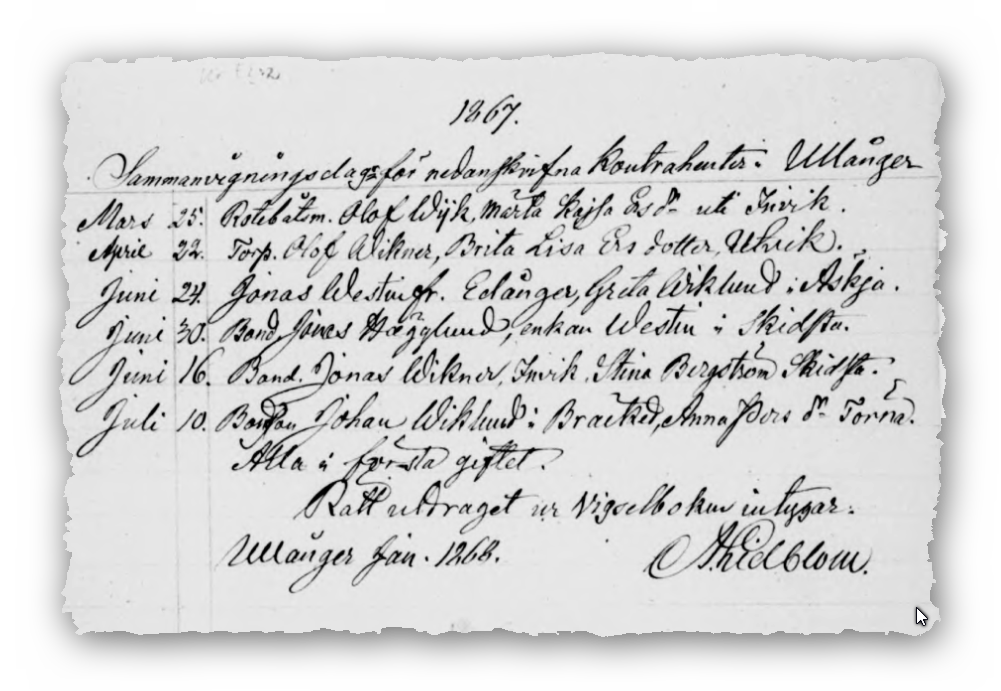 1867.
Sammanvigningsdag för nedanskrifna Kontrahenter: Ullånger
Mars 25. Rotebåtsm. Olof Wijk, Märta Kajsa Ersdr uti Invik.
April 22. Torp. Olof Wikner, Brita Lisa Ersdotter, Utvik.
Juni 24. Jonas Westin fr. Edånger, Greta Wiklund i Askja.
Juni 30. Bond. Jonas Hægglund, enkan Westin i Skidsta.
Juni 16. Bond. Jonas Wikner, Invik, Stina Bergström Skidsta.
Juli 10. Johan Wiklund i Bræcked, Anna Pers dr Torna.
Alla i första giftet.
Rätt utdraget ur Vigselboken intygar:
Ullånger Jan. 1868. Lidblom.